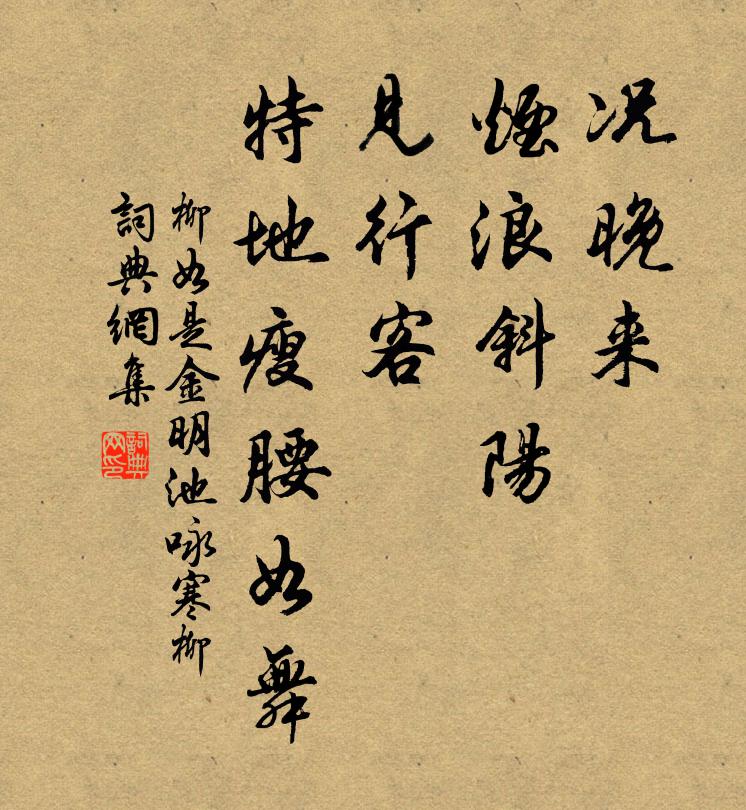 况晚来
煙浪斜陽
見行客
特地瘦腰如舞
柳如是金明池咏寒柳
詞典網集
詞典网印